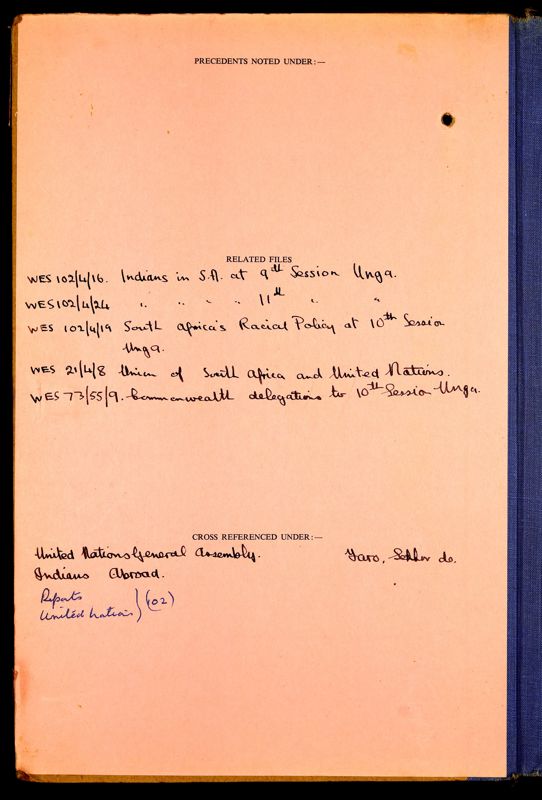 PRECEDENTS NOTED UNDER:—
RELATED FILES
WES 102/4/16. Indians in S.A. at 9th Session Unga.
WES 102/4/24 " " " " 11th " "
WES 102/4/19 South Africa's Racial Policy at 10th Session
Unga.
WES 21/4/8 Union of South Africa and United Nations.
WES 73/55/9. Commonwealth delegations to 10th Session Unga.
CROSS REFERENCED UNDER:—
United Nations General Assembly.
Faro, de.
Indians Abroad.
Reports
United Nations } (02)